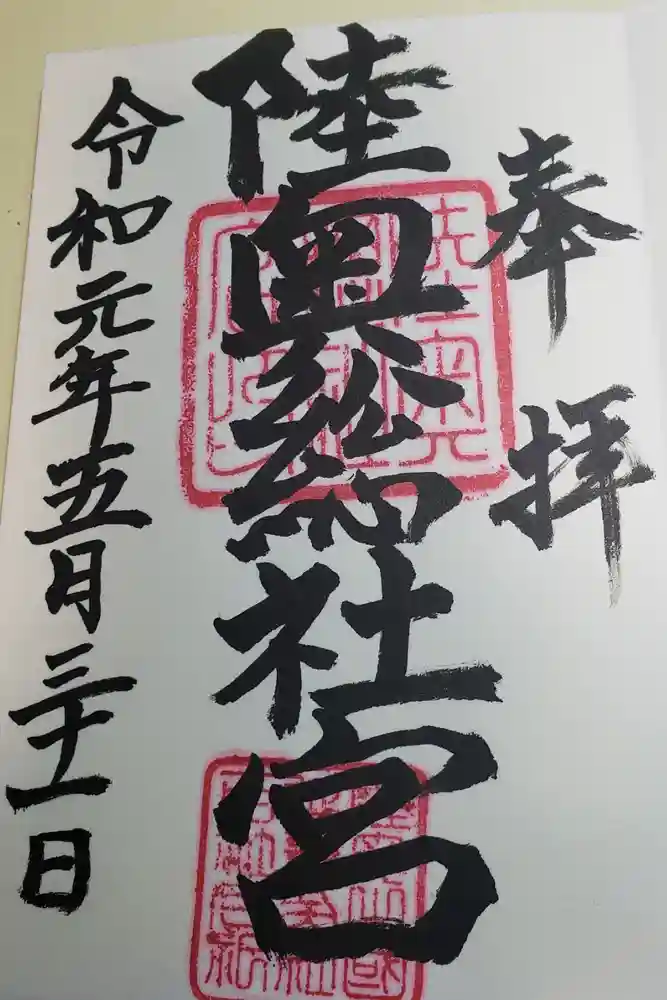 奉拝
陸奥総社宮
令和元年五月三十一日